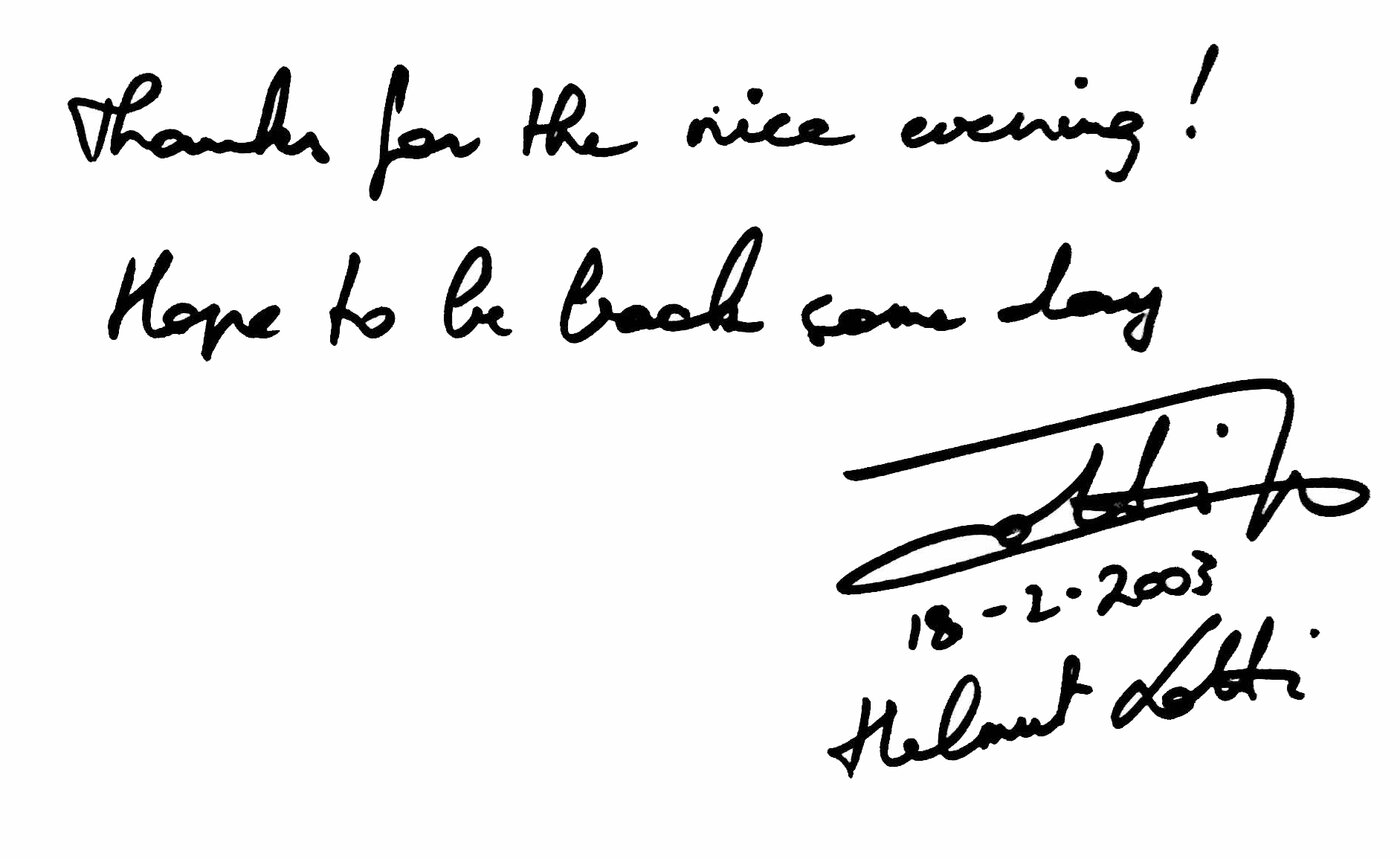 Thanks for the nice evening!
Hope to be back some day
Lotti
18-2-2003
Helmut Lotti